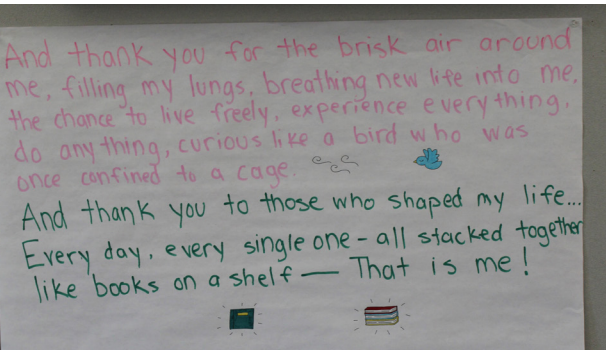 And thank you for the brisk air around
me, filling my lungs, breathing new life into me,
the chance to live freely, experience everything,
do anything, curious like a bird who was
once confined to a cage.
And thank you to those who shaped my life...
Every day, every single one - all stacked together
like books on a shelf — That is me!